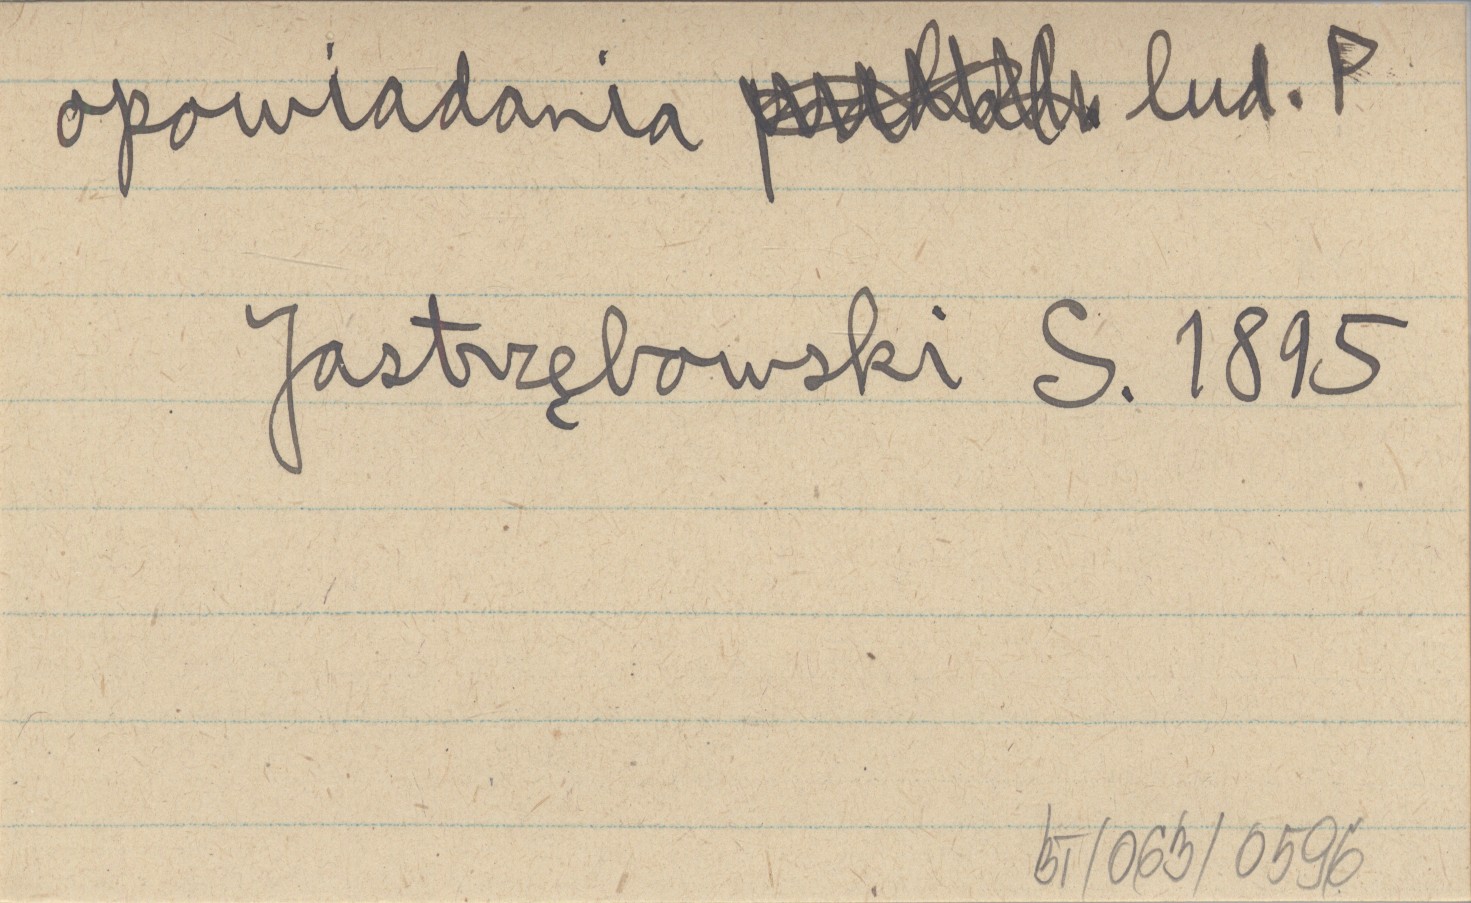 opowiadania lud. P
Jastrzębowski S. 1895
BT/063/0596